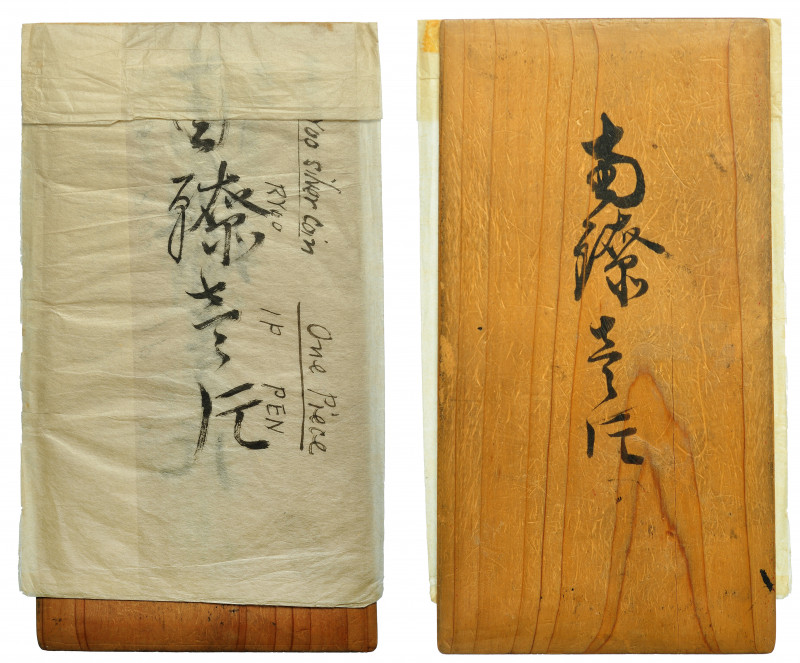 yoo silver Coin
RYOO
One Piece
IP PEN
南鐐壱片
南鐐壱片